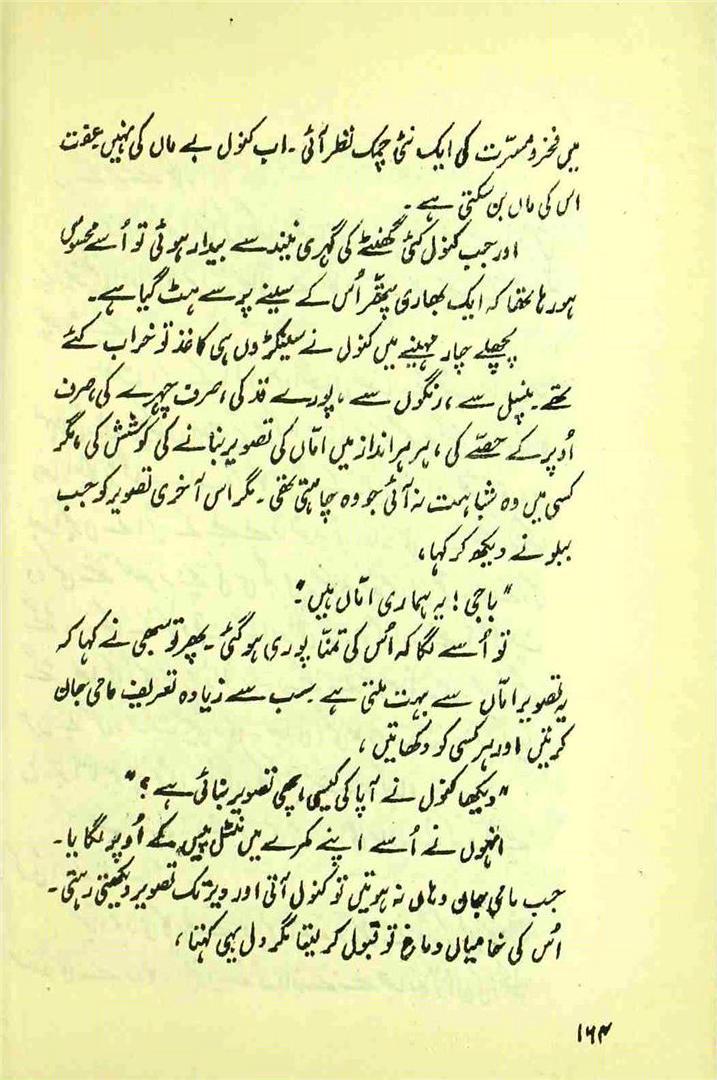 میں فخر و مسرّت کی ایک نئی چمک نظر آئی ۔ اب کنول بے ماں کی نہیں عِفت
اس کی ماں بن سکتی ہے ۔
اور جب کنول کئی گھنٹے کی گہری نیند سے بیدار ہوئی تو اُسے محسوس
ہو رہا تھا کہ ایک بھاری پتھّر اُس کے سینے پر سے ہٹ گیا ہے ۔
پچھلے چار مہینے میں کنول نے سینکڑوں ہی کاغذ تو خراب کئے
تھے ۔ پنسِل سے ، رنگوں سے ، پورے قد کی ، صرف چہرے کی ، صرف
اُوپر کے حصّے کی ، ہر ہر انداز میں امّاں کی تصویر بنانے کی کوشش کی ، مگر
کسی میں وہ شباہت نہ آئی جو وہ چاہتی تھی ۔ مگر اس آخری تصویر کو جب
ببلو نے دیکھ کر کہا ،
"باجی ! یہ ہماری امّاں ہیں ۔"
تو اُسے لگا کہ اُس کی تمنّا پوری ہو گئی ۔ پھر تو سبھی نے کہا کہ
یہ تصویر امّاں سے بہت ملتی ہے ۔ سب سے زیادہ تعریف مامی جان
کرتیں اور ہر کسی کو دکھاتیں ،
"دیکھا کنول نے آپا کی کیسی اچھی تصویر بنائی ہے ؟"
انہوں نے اُسے اپنے کمرے میں مینٹل پیس کے اُوپر لگایا ۔
جب مامی جان وہاں نہ ہوتیں تو کنول آتی اور دیر تک تصویر دیکھتی رہتی ۔
اُس کی خامیاں دماغ تو قبول کر لیتا مگر دل یہی کہتا ،
۱۶۴